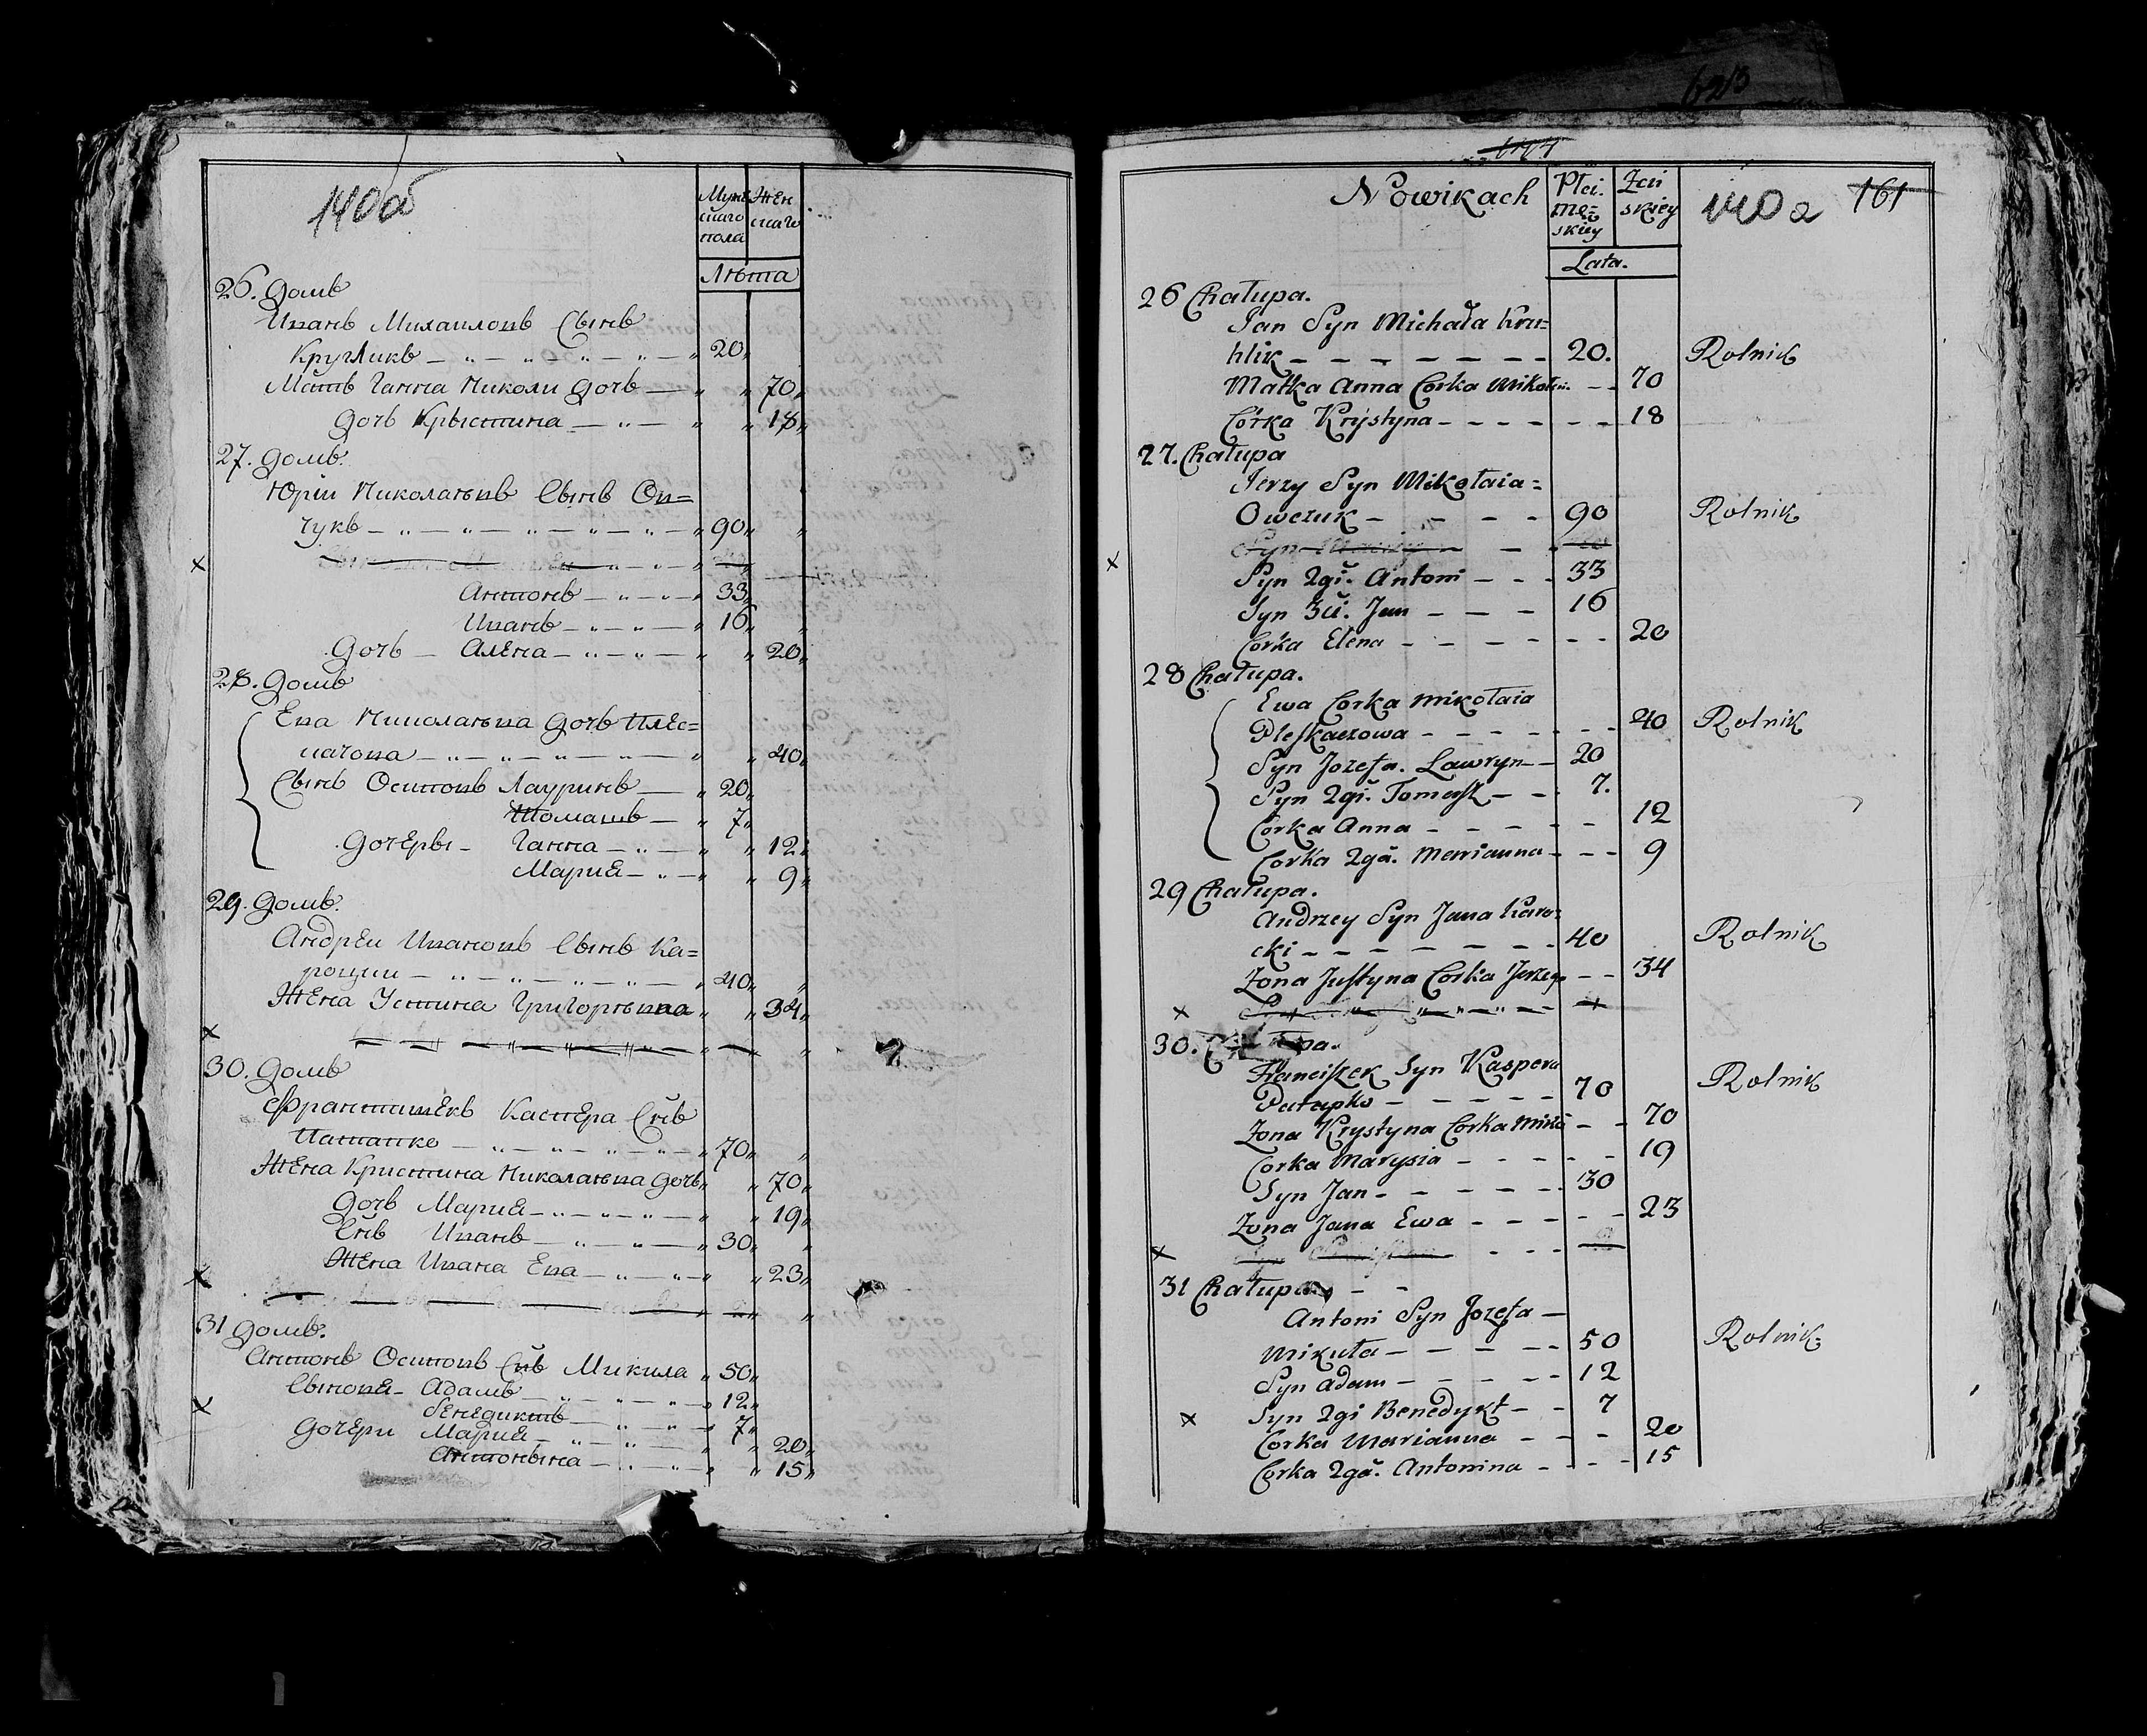 140об
Муж Жен
скаго скаго
пола
Лѣта
26. домъ
Иванъ Михаиловъ Сынъ
Кругликъ 20
Мать Ганна Николи дочь 70
дочь Крыстина 18
27. домъ.
Юріи Николаевъ Сынъ Ов=
чукъ 90
Антонъ 33
Иванъ 16
Дочь Алена 20
28. домъ
Ева Николаева дочь Плес=
качова 40
Сынъ Осиповъ Лауринъ 20
Томашъ 7
Дочеры Ганна 12
Мариа 9
29. домъ.
Андреи Ивановъ Сынъ Ка=
роцки 40
Жена Устина Григорьева 34
30. домъ
Франтишекъ Каспера Снъ
Патапко 70
Жена Кристина Николаева дочь 70
дочь Мариа 19
Снъ Иванъ 30
Жена Ивана Ева 23
31 домъ.
Антонъ Осиповъ Снъ Микила 50
Сынове Адамъ 12
Бенедиктъ 7
Дочери Мариа 20
Антонына 15
623
Nowikach
Płci Zeń
mę= skiey
skiey
Lata.
140 а
161
26 Chałupa.
Jan Syn Michała Kru=
hlik 20. Rolnik
Matka Anna Corka Mikołaia 70
Córka Krystyna 18
27. Chałupa
Jerzy Syn Mikołaia=
Owczuk 90 Rolnik
Syn 2gi. Antoni 33
Syn 3ci. Jan 16
Corka Elena 20
28 Chałupa.
Ewa Corka Mikołaia
Pleskaczowa 40 Rolnik
Syn Jozefa. Lawryn 20
Syn 2gi. Tomasz 7.
Corka Anna 12
Corka 2ga. Marianna 9
29 Chałupa.
Andrzey Syn Jana Karo=
cki 40 Rolnik
Zona Justyna Corka Jerzego 34
30.
Franciszek Syn Kaspera
Patapko 70 Rolnik
Zona Krystyna Corka Miko 70
Corka Marysia 19
Syn Jan 30
Zona Jana Ewa 23
31 Chałupa
Antoni Syn Jozefa
Mikuła 50 Rolnik
Syn Adam 12
Syn 2gi Benedykt 7
Corka Marianna 20
Corka 2ga. Antonina 15